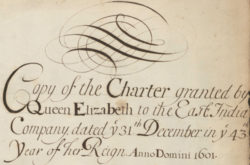 Copy of the Charter granted by
Queen Elizabeth to the East India
Company dated ẏ 31th December in ẏ 43
Year of her Reign. Anno Domini 1601.